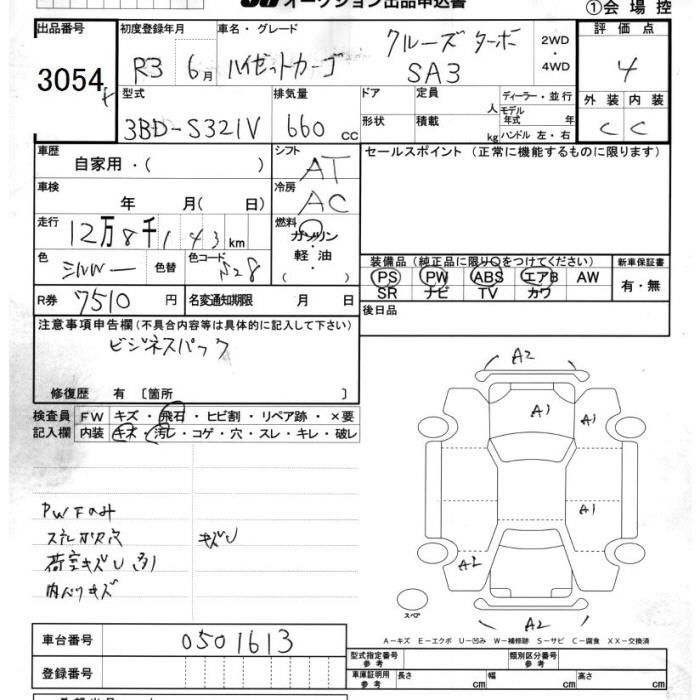 オークション出品申込書 ①会場控
出品番号 初度登録年月 車名・グレード 2WD・4WD 評価点
3054 R3 6月 ハイゼットカーゴ クルーズターボ SA3 4
型式 排気量 ドア 定員 人 ディーラー・並行 外装 内装
モデル年式 年
3BD-S321V 660cc 形状 積載 kg ハンドル 左・右 C C
車歴 自家用・( ) シフト AT セールスポイント (正常に機能するものに限ります)
車検 年 月( 日) 冷房 AC
走行 12万8千143km 燃料 ガソリン・軽油・( )
色 シルバー 色替 色コード S28 装備品 (純正品に限り○をつけてください) 新車保証書
PS PW ABS エアB AW 有・無
SR ナビ TV カワ
R券 7510円 名変通知期限 月 日 後日品
注意事項申告欄(不具合内容等は具体的に記入して下さい)
ビジネスパック
修復歴 有 〔箇所 〕
検査員 FW キズ・飛石・ヒビ割・リペア跡・×要
記入欄 内装 キズ・汚レ・コゲ・穴・スレ・キレ・破レ
A2
A1 A1
A1
A2
A2
PWFのみ
キズU
荷室キズU
内ハリキズ
スペア
A-キズ E-エクボ U-凹み W-補修跡 S-サビ C-腐食 XX-交換済
車台番号 0501613 型式指定番号 参考 類別区分番号 参考
登録番号 車庫証明用 参考 長さ cm 幅 cm 高さ cm